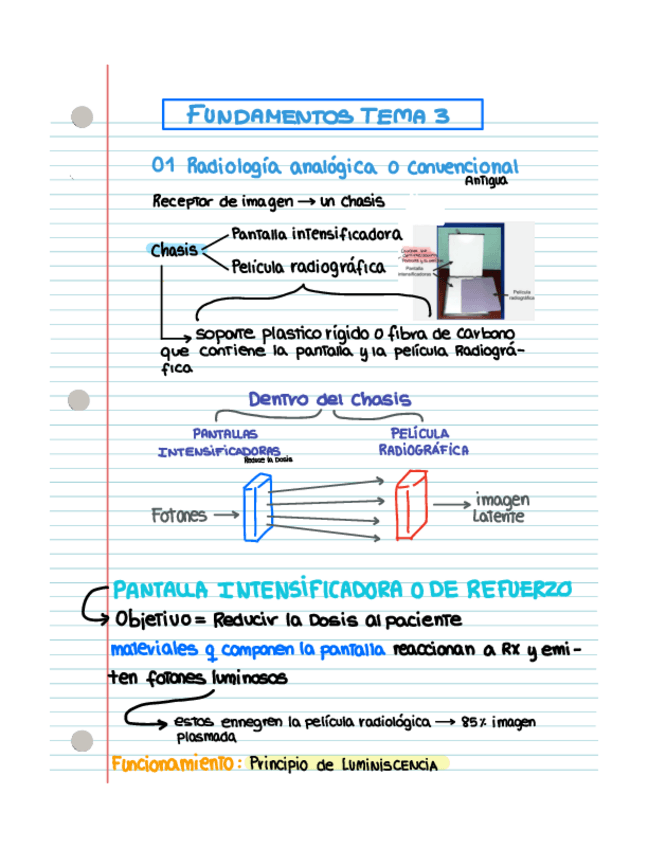 FUNDAMENTOS TEMA 3
01 Radiología analógica o convencional
Antigua
Receptor de imagen → un chasis
Chasis
Pantalla intensificadora
Película radiográfica
Pantalla
intensificadoras
Película
radiográfica
soporte plastico rígido o fibra de carbono
que contiene la pantalla y la película Radiográ-
fica
Dentro del chasis
PANTALLAS
INTENSIFICADORAS
Reduce la Dosis
PELÍCULA
RADIOGRÁFICA
Fotones →
→ imagen
Latente
PANTALLA INTENSIFICADORA O DE REFUERZO
Objetivo = Reducir la Dosis al paciente
materiales q componen la pantalla reaccionan a Rx y emi-
ten fotones luminosos
estos ennegren la película radiológica → 85% imagen
plasmada
Funcionamiento: Principio de LUMINISCENCIA